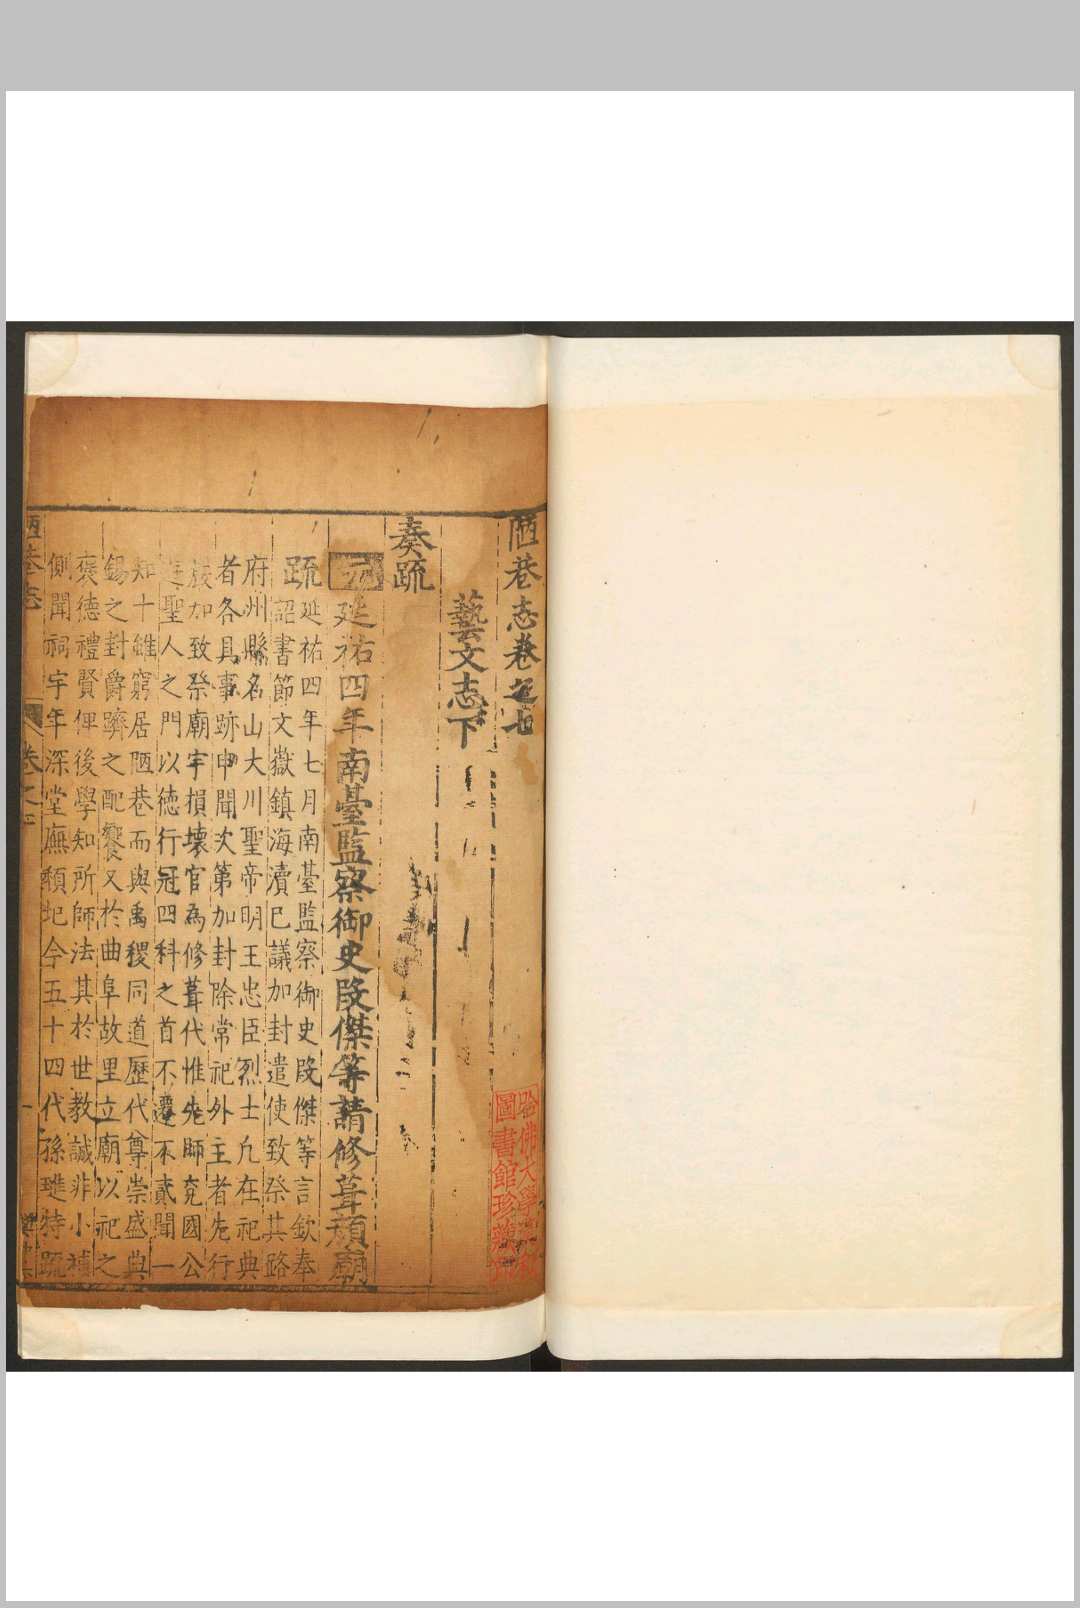 陋巷志卷之七
藝文志下
奏疏
元延祐四年南臺監察御史段傑等請修葺顏廟
疏延祐四年七月南臺監察御史段傑等言欽奉
詔書節文嶽鎮海瀆已議加封遣使致祭其路
府州縣名山大川聖帝明王忠臣烈士凢在祀典
者各具事跡申聞次第加封除常祀外主者尨行
嚴加致祭廟宇損壞官為修葺代惟先師兖國公
聖人之門以德行冠四科之首不遷不貳聞一
知十雖窮居陋巷而與禹稷同道歷代尊崇盛典
錫之封爵躋之配饗又於曲阜故里立廟以祀之
褒德禮賢俾後學知所師法其於世教誠非小補
側聞祠宇年深堂廡頹圮今五十四代孫璡特疏
陋巷志
卷之七
一
哈佛大學
圖書館珍藏印